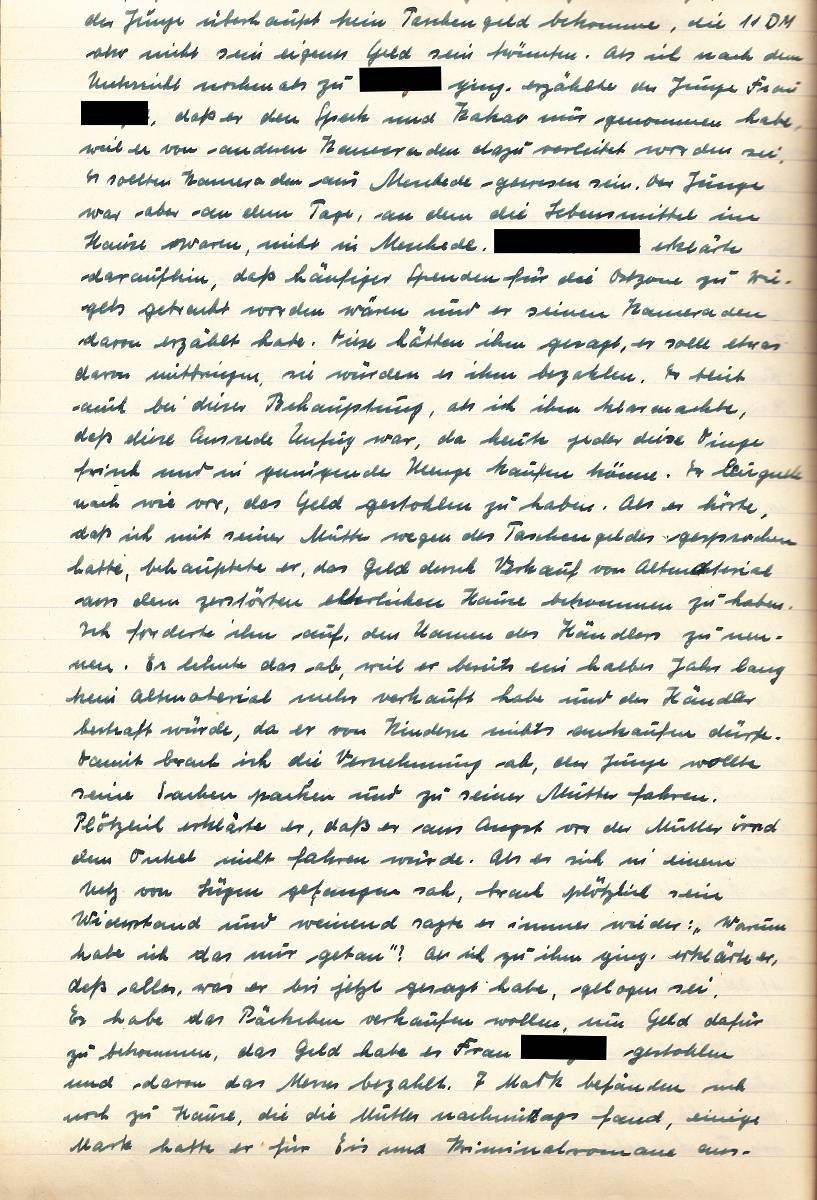 der Junge überhaupt kein Taschengeld bekomme, die 11 DM
also nicht sein eigenes Geld sein könnten. Als ich nach dem
Unterricht nochmals zu ging, erzählte der Junge Frau
, daß er den Speck und Kakao nur genommen habe,
weil er von anderen Kameraden dazu verleitet worden sei.
Es sollten Kameraden aus Meschede gewesen sein. Der Junge
war aber an dem Tage, an dem die Lebensmittel im
Hause waren, nicht in Meschede. erklärte
daraufhin, daß häufiger Spenden für die Ostzone zu
gebracht worden wären und er seinen Kameraden
davon erzählt habe. Diese hätten ihm gesagt, er solle etwas
davon mitbringen, sie würden es ihm bezahlen. Er blieb
auch bei dieser Behauptung, als ich ihm klarmachte,
daß diese Ausrede Unfug war, da heute jeder diese Dinge
frisch und in genügende Menge kaufen könne. Er leugnete
nach wie vor, das Geld gestohlen zu haben. Als er hörte,
daß ich mit seiner Mutter wegen des Taschengeldes gesprochen
hatte, behauptete er, das Geld durch Verkauf von Altmaterial
aus dem zerstörten elterlichen Hause bekommen zu haben.
Ich forderte ihn auf, den Namen des Händlers zu nen-
nen. Er lehnte das ab, weil er bereits ein halbes Jahr lang
kein Altmaterial mehr verkauft habe und der Händler
bestraft würde, da er von Kindern nichts ankaufen dürfe.
Damit brach ich die Vernehmung ab, der Junge wollte
seine Sachen packen und zu seiner Mutter fahren.
Plötzlich erklärte er, daß er aus Angst vor der Mutter und
dem Onkel nicht fahren würde. Als er sich in einem
Netz von Lügen gefangen sah, brach plötzlich sein
Widerstand und weinend sagte er immer wieder: „Warum
habe ich das nur getan"? Als ich zu ihm ging, erklärte er,
daß alles, was er bis jetzt gesagt habe, gelogen sei.
Er habe das Päckchen verkaufen wollen, um Geld dafür
zu bekommen, das Geld habe er Frau gestohlen
und davon das Messer bezahlt. 7 Mark befänden sich
noch zu Hause, die die Mutter nachmittags fand, einige
Mark hatte er für Eis und Kriminalromane aus-